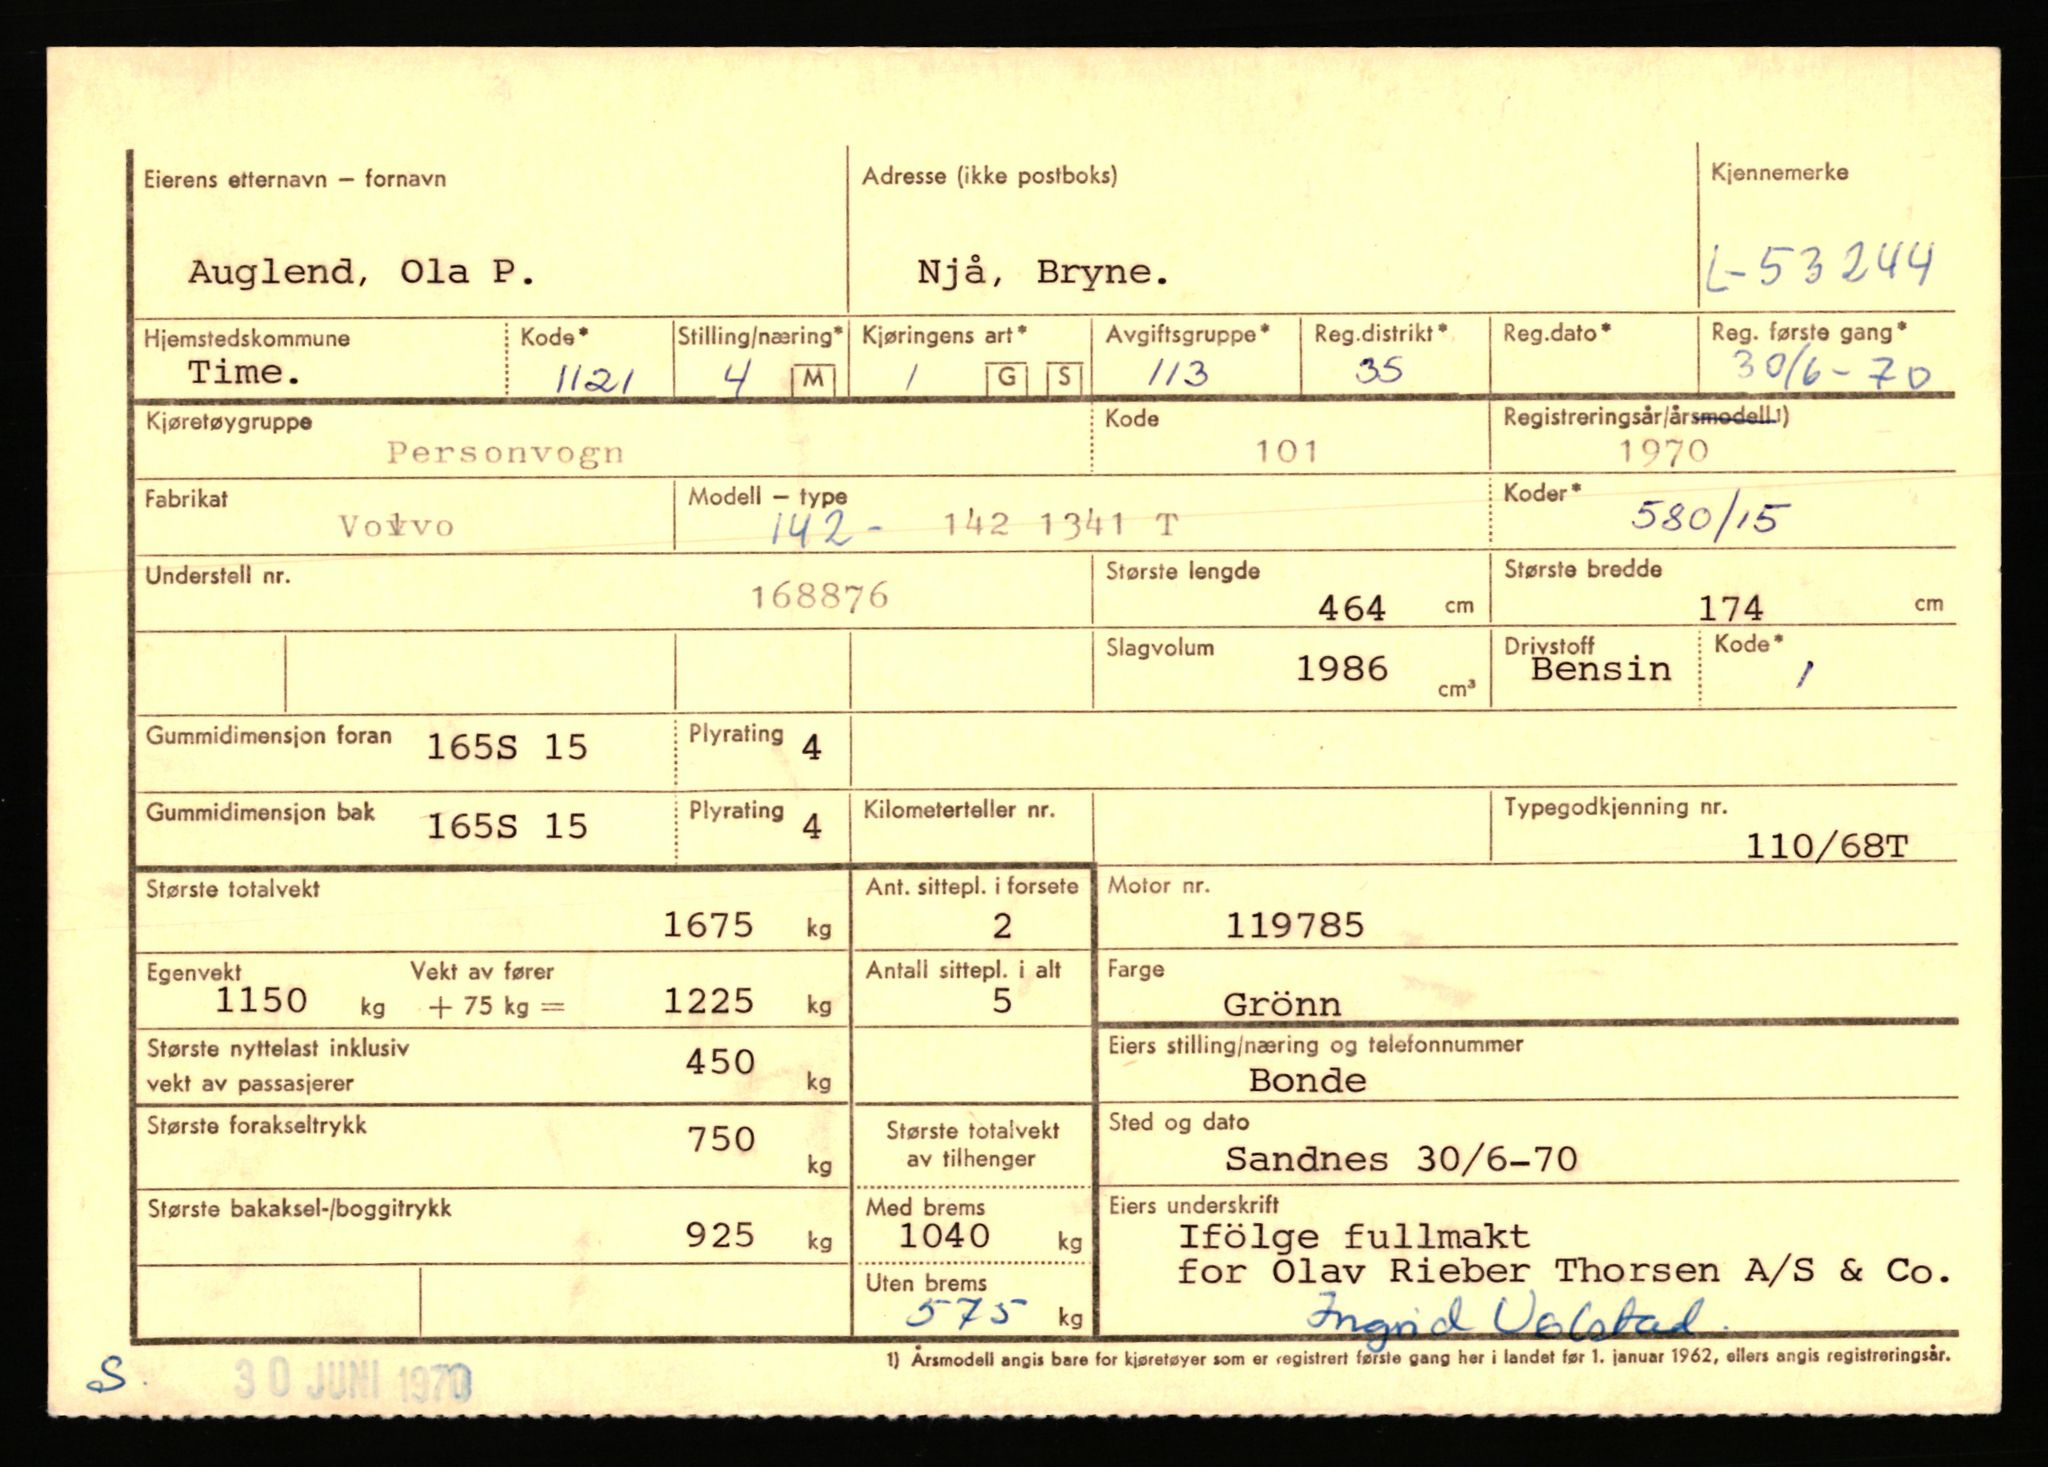 Eierens etternavn – fornavn Adresse (ikke postboks) Kjennemerke
Auglend, Ola P. Njå, Bryne. L-53244
Hjemstedskommune Kode* Stilling/næring* Kjøringens art* Avgiftsgruppe* Reg.distrikt* Reg.dato* Reg. første gang*
Time. 1121 4 M 1 G S 113 35 30/6-70
Kjøretøygruppe Kode Registreringsår/årsmodell 1)
Personvogn 101 1970
Fabrikat Modell – type Koder*
Volvo 142- 142 1341 T 580/15
Understell nr. Største lengde Største bredde
168876 464 cm 174 cm
Slagvolum Drivstoff Kode*
1986 cm³ Bensin 1
Gummidimensjon foran 165S 15 Plyrating 4
Gummidimensjon bak 165S 15 Plyrating 4 Kilometerteller nr. Typegodkjenning nr.
110/68T
Største totalvekt Ant. sittepl. i forsete Motor nr.
1675 kg 2 119785
Egenvekt Vekt av fører Antall sittepl. i alt Farge
1150 kg + 75 kg = 1225 kg 5 Grönn
Største nyttelast inklusiv Eiers stilling/næring og telefonnummer
vekt av passasjerer 450 kg Bonde
Største forakseltrykk Største totalvekt Sted og dato
750 kg av tilhenger Sandnes 30/6-70
Største bakaksel-/boggitrykk Med brems Eiers underskrift
925 kg 1040 kg Ifölge fullmakt
for Olav Rieber Thorsen A/S & Co.
Uten brems
575 kg Ingrid Volstad.
1) Årsmodell angis bare for kjøretøyer som er registrert første gang her i landet før 1. januar 1962, ellers angis registreringsår.
S. 30 JUNI 1970